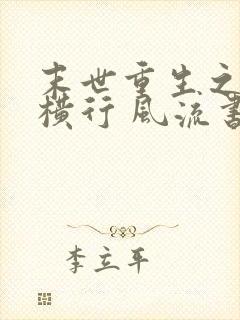 末世重生之
横行风流书
李立平